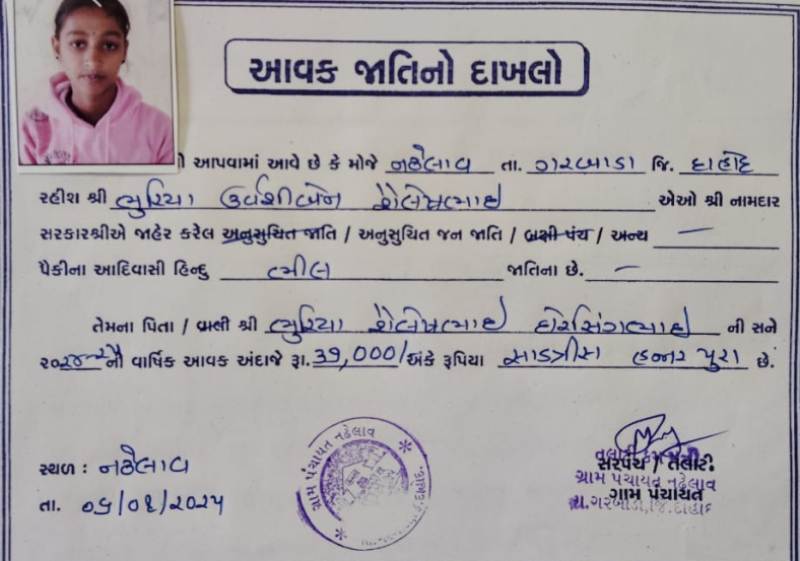 આવક જાતિનો દાખલો
આપવામાં આવે છે કે મોજે નઢેલાવ તા. ગરબાડા જિ. દાહોદ
રહીશ શ્રી ભુરિયા ઉર્વશીબેન શૈલેષભાઇ એઓ શ્રી નામદાર
સરકારશ્રીએ જાહેર કરેલ અનુસુચિત જાતિ / અનુસુચિત જન જાતિ / બક્ષી પંચ / અન્ય —
પૈકીના આદિવાસી હિન્દુ ભીલ જાતિના છે. —
તેમના પિતા / વાલી શ્રી ભુરિયા શૈલેષભાઇ ની સને
નો વાર્ષિક આવક અંદાજે રૂા. 37,000/ અંકે રૂપિયા સાડત્રીસ હજાર પુરા છે.
ગ્રામ પંચાયત નઢેલાવ
સ્થળ : નઢેલાવ
તા. ૦૬/૦૧/૨૦૨૫
સરપંચ / તલાટી
ગ્રામ પંચાયત નઢેલાવ
ગામ પંચાયત
તા.ગરબાડા,જિ.દાહોદ